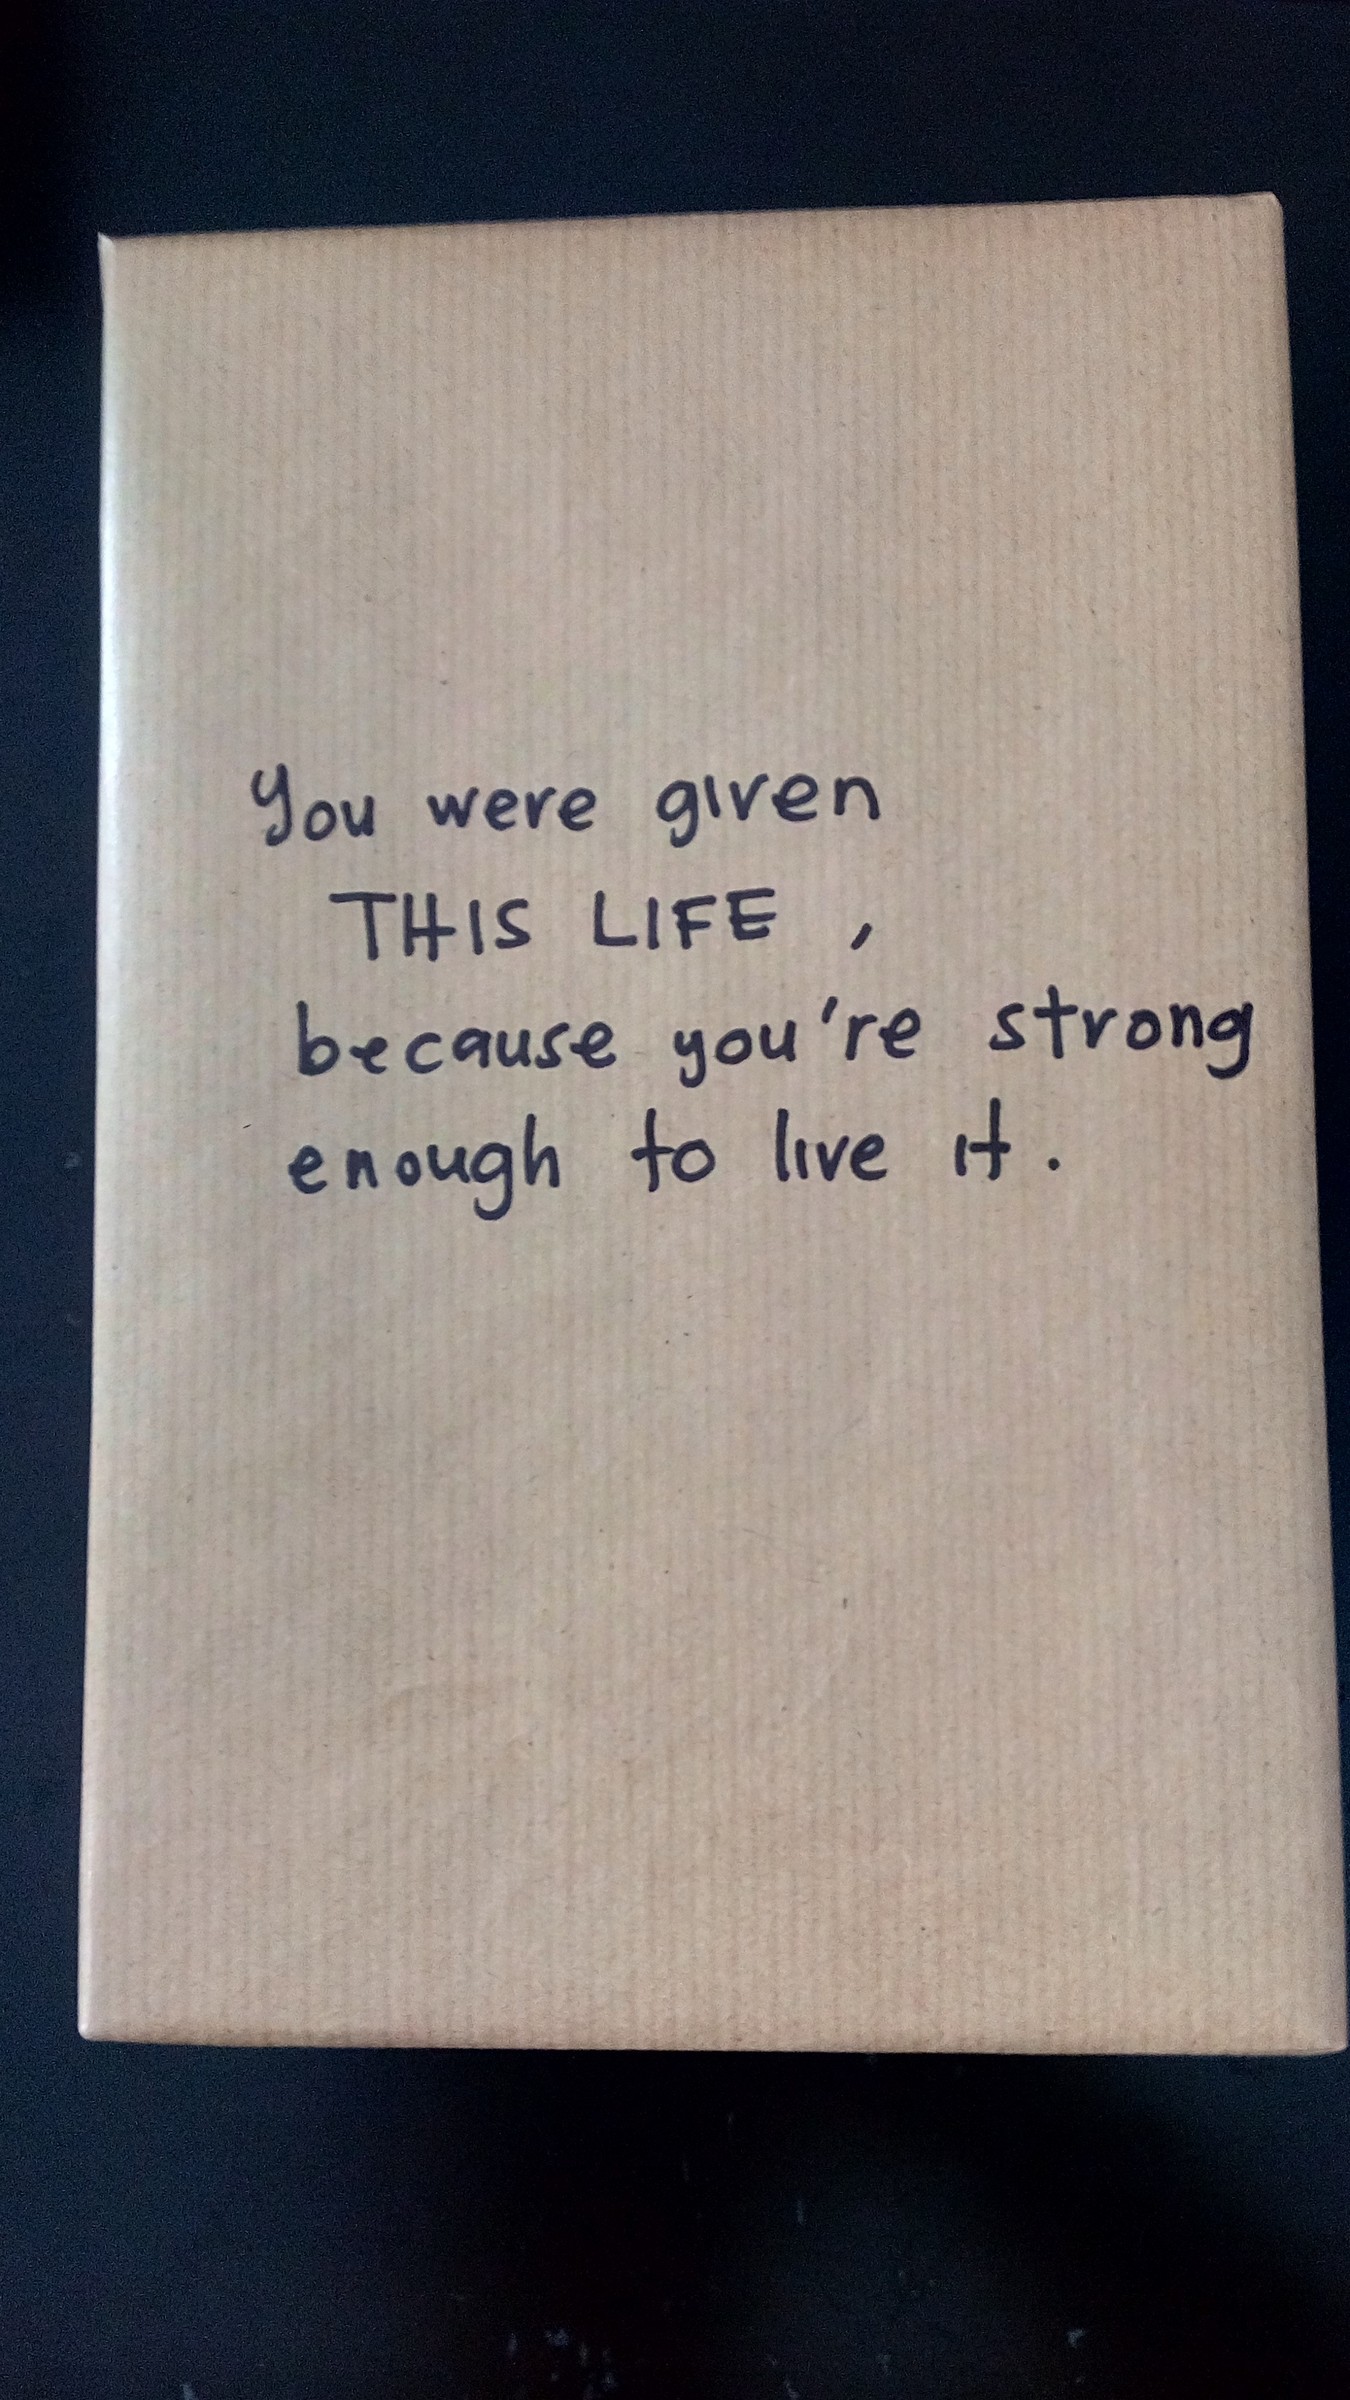 You were given
THIS LIFE ,
because you're strong
enough to live it.